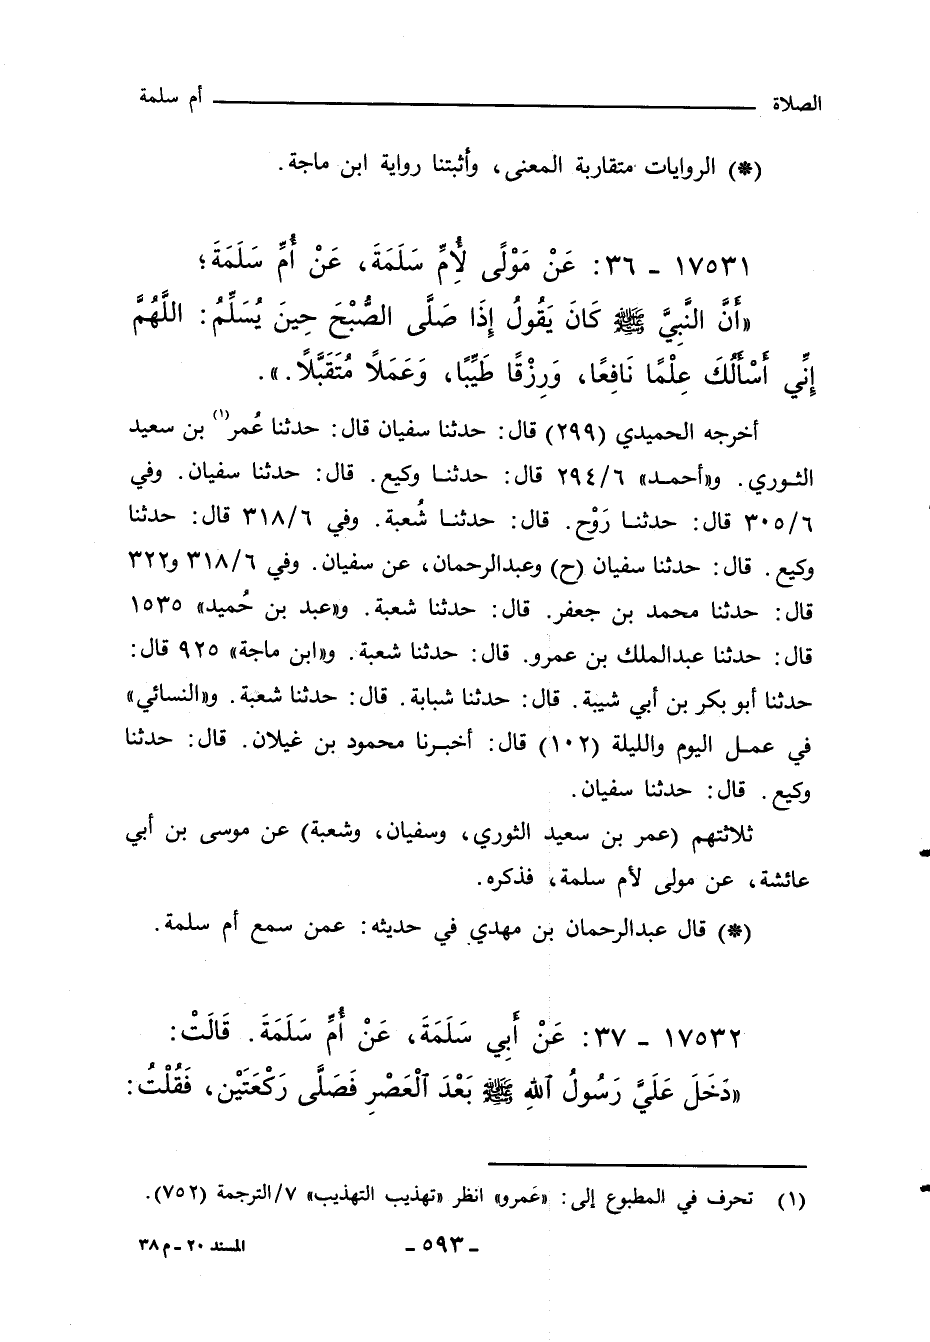 الصلاة ـــــــــ أم سلمة
(*) الروايات متقاربة المعنى، وأثبتنا رواية ابن ماجة.
١٧٥٣١ ـ ٣٦: عَنْ مَوْلًى لأُمِّ سَلَمَةَ، عَنْ أُمِّ سَلَمَةَ؛
«أَنَّ النَّبِيَّ ﷺ كَانَ يَقُولُ إِذَا صَلَّى الصُّبْحَ حِينَ يُسَلِّمُ: اللَّهُمَّ
إِنِّي أَسْأَلُكَ عِلْمًا نَافِعًا، وَرِزْقًا طَيِّبًا، وَعَمَلاً مُتَقَبَّلاً.».
أخرجه الحميدي (٢٩٩) قال: حدثنا سفيان قال: حدثنا عُمر(١) بن سعيد
الثوري. و«أحمد» ٢٩٤/٦ قال: حدثنا وكيع. قال: حدثنا سفيان. وفي
٣٠٥/٦ قال: حدثنا رَوْح. قال: حدثنا شُعبة. وفي ٣١٨/٦ قال: حدثنا
وكيع. قال: حدثنا سفيان (ح) وعبدالرحمان، عن سفيان. وفي ٣١٨/٦ و٣٢٢
قال: حدثنا محمد بن جعفر. قال: حدثنا شعبة. و«عبد بن حُميد» ١٥٣٥
قال: حدثنا عبدالملك بن عمرو. قال: حدثنا شعبة. و«ابن ماجة» ٩٢٥ قال:
حدثنا أبو بكر بن أبي شيبة. قال: حدثنا شبابة. قال: حدثنا شعبة. و«النسائي»
في عمل اليوم والليلة (١٠٢) قال: أخبرنا محمود بن غيلان. قال: حدثنا
وكيع. قال: حدثنا سفيان.
ثلاثتهم (عمر بن سعيد الثوري، وسفيان، وشعبة) عن موسى بن أبي
عائشة، عن مولى لأم سلمة، فذكره.
(*) قال عبدالرحمان بن مهدي في حديثه: عمن سمع أم سلمة.
١٧٥٣٢ ـ ٣٧: عَنْ أَبِي سَلَمَةَ، عَنْ أُمِّ سَلَمَةَ. قَالَتْ:
«دَخَلَ عَلَيَّ رَسُولُ ٱللهِ ﷺ بَعْدَ ٱلْعَصْرِ فَصَلَّى رَكْعَتَيْنِ، فَقُلْتُ:
(١) تحرف في المطبوع إلى: «عَمرو» انظر «تهذيب التهذيب» ٧/الترجمة (٧٥٢).
ـ ٥٩٣ ـ
المسند ٢٠ ـ م٣٨